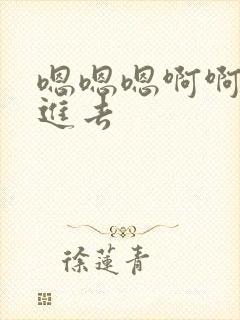 嗯嗯嗯啊啊
進去
徐蓮青